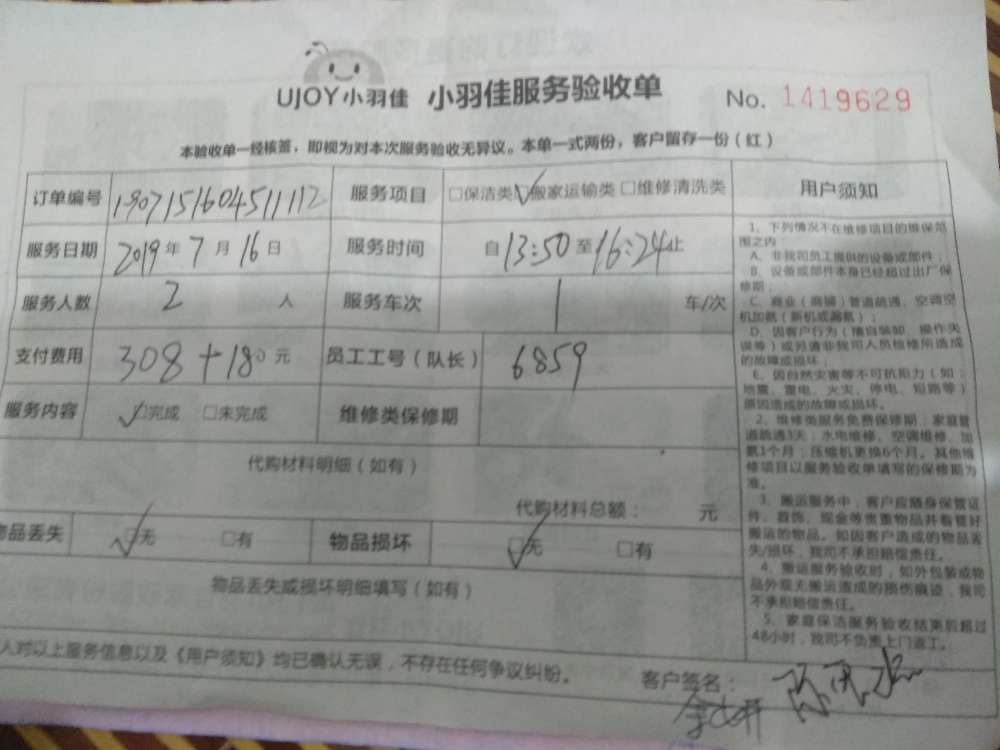 UJOY小羽佳 小羽佳服务验收单 No. 1419629
本验收单一经核签，即视为对本次服务验收无异议。本单一式两份，客户留存一份（红）
订单编号 1907151604511112 服务项目 □保洁类 ☑搬家运输类 □维修清洗类
服务日期 2019年7月16日 服务时间 自13:50至16:24止
服务人数 2人 服务车次 1车/次
支付费用 308+180元 员工工号（队长） 6859
服务内容 ☑完成 □未完成 维修类保修期
代购材料明细（如有）
代购材料总额： 元
物品丢失 ☑无 □有 物品损坏 ☑无 □有
物品丢失或损坏明细填写（如有）
人对以上服务信息以及《用户须知》均已确认无误，不存在任何争议纠纷。
客户签名：
用户须知
1、下列情况不在维修项目的维保范
围之内
A、非我司员工提供的设备或部件；
B、设备或部件本身已经超过出厂保
修期；
C、商业（商铺）管道疏通、空调空
机加氨（新机或漏氨）；
D、因客户行为（擅自装卸、操作失
误等）或另请非我司人员检修所造成
的故障或损坏；
E、因自然灾害等不可抗拒力（如：
地震、雷电、火灾、停电、短路等）
原因造成的故障或损坏。
2、维修类服务免费保修期：家庭管
道疏通3天；水电维修、空调维修、加
氨1个月；压缩机更换6个月。其他维
修项目以服务验收单填写的保修期为
准。
3、搬运服务中，客户应随身保管证
件、首饰、现金等贵重物品并看管好
搬运的物品。如因客户造成的物品丢
失/损坏，我司不承担赔偿责任。
4、搬运服务验收时，如外包装或物
品外观无搬运造成的损伤痕迹，我司
不承担赔偿责任。
5、家庭保洁服务验收结束后超过
48小时，我司不负责上门返工。